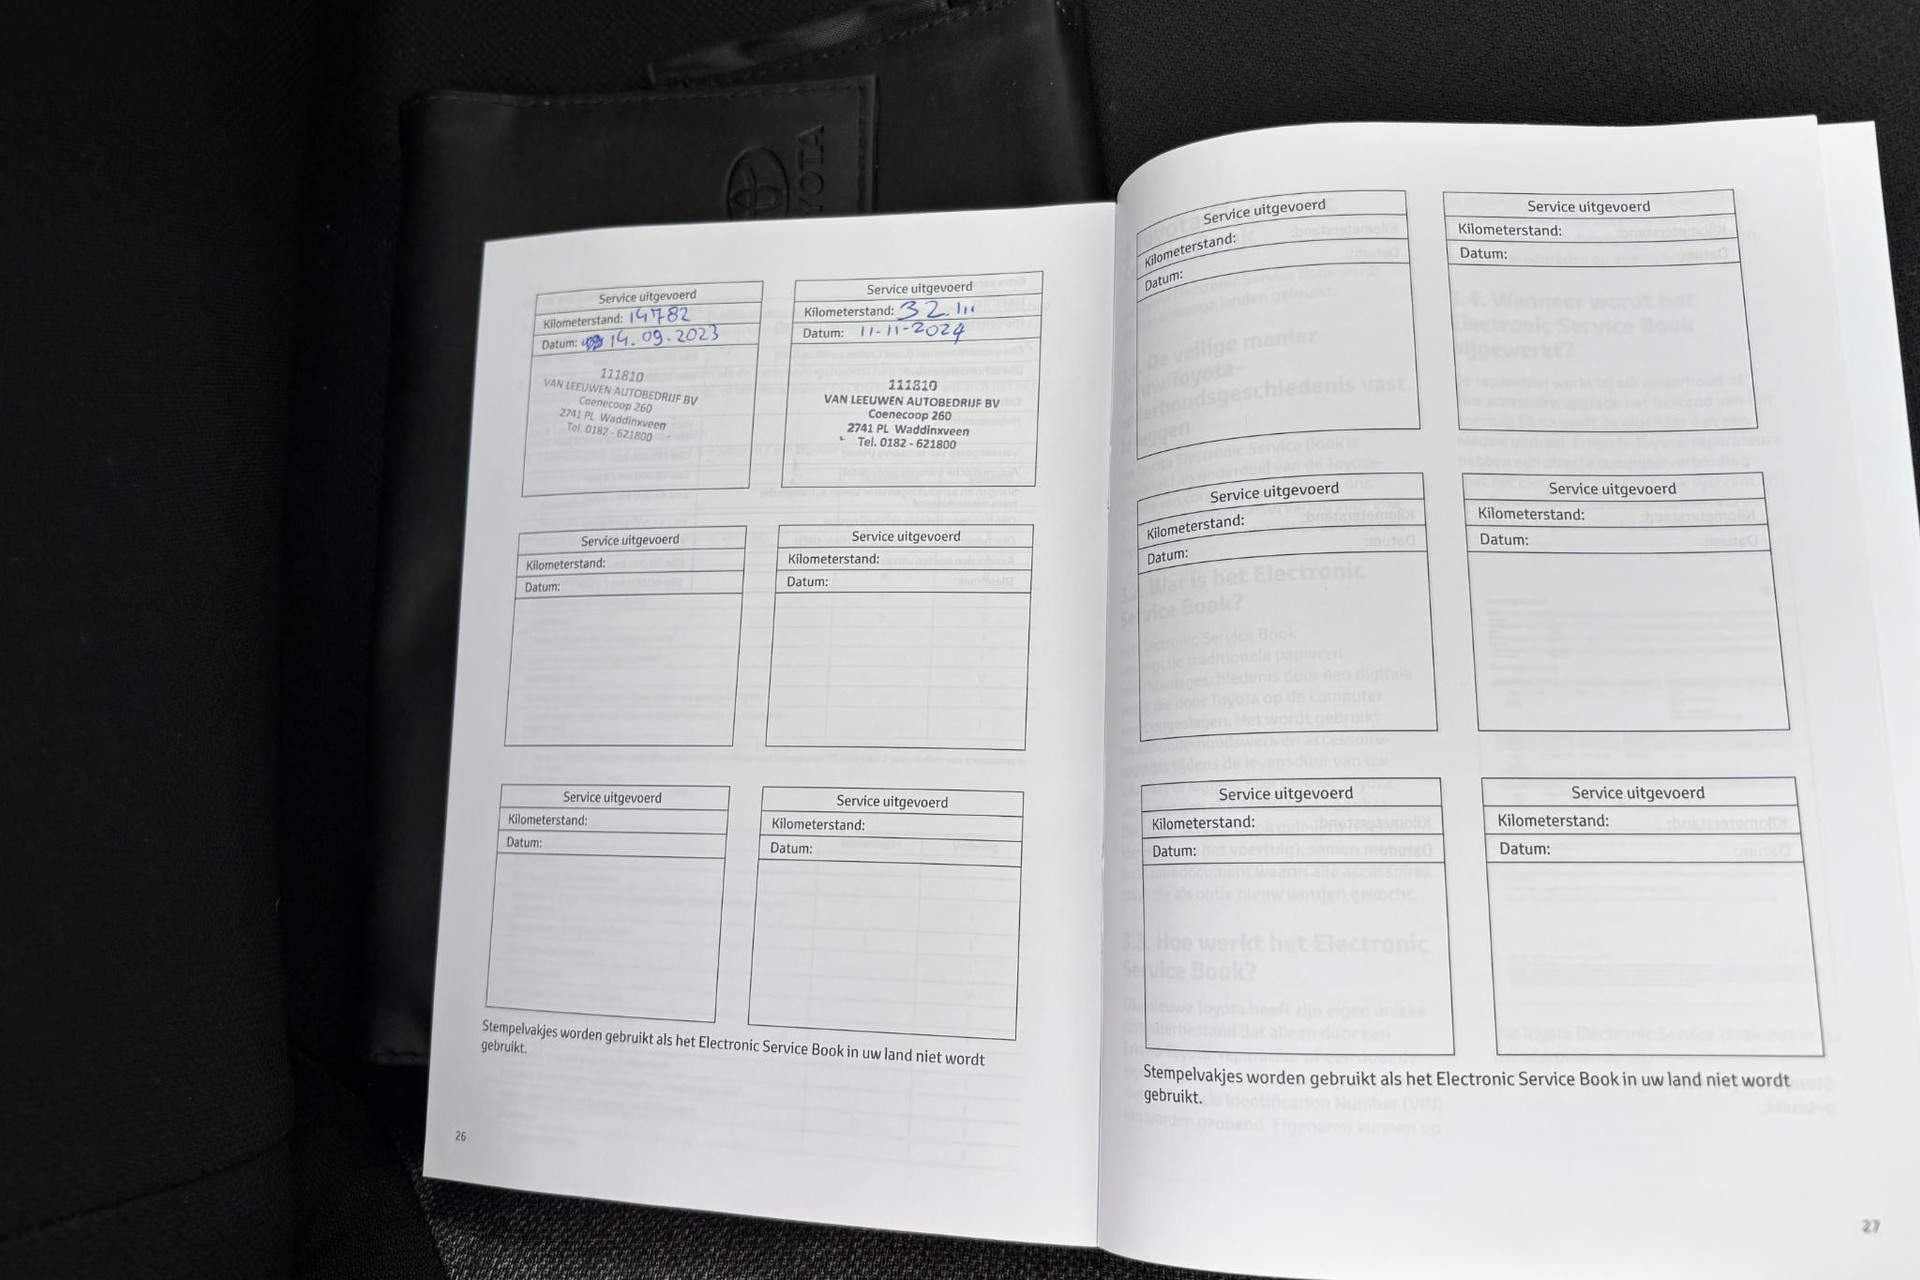 TOYOTA
Service uitgevoerd
Kilometerstand: 14782
Datum: 14.09.2023
111810
VAN LEEUWEN AUTOBEDRIJF BV
Coenecoop 260
2741 PL Waddinxveen
Tel. 0182 - 621800
Service uitgevoerd
Kilometerstand: 32.111
Datum: 11-11-2024
111810
VAN LEEUWEN AUTOBEDRIJF BV
Coenecoop 260
2741 PL Waddinxveen
Tel. 0182 - 621800
Service uitgevoerd
Kilometerstand:
Datum:
Service uitgevoerd
Kilometerstand:
Datum:
Service uitgevoerd
Kilometerstand:
Datum:
Service uitgevoerd
Kilometerstand:
Datum:
Stempelvakjes worden gebruikt als het Electronic Service Book in uw land niet wordt
gebruikt.
26
Service uitgevoerd
Kilometerstand:
Datum:
Service uitgevoerd
Kilometerstand:
Datum:
Service uitgevoerd
Kilometerstand:
Datum:
Service uitgevoerd
Kilometerstand:
Datum:
Service uitgevoerd
Kilometerstand:
Datum:
Service uitgevoerd
Kilometerstand:
Datum:
Stempelvakjes worden gebruikt als het Electronic Service Book in uw land niet wordt
gebruikt.
27